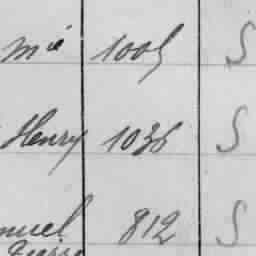 mie 1005 S
Henry 1036 S
nuel 812 S